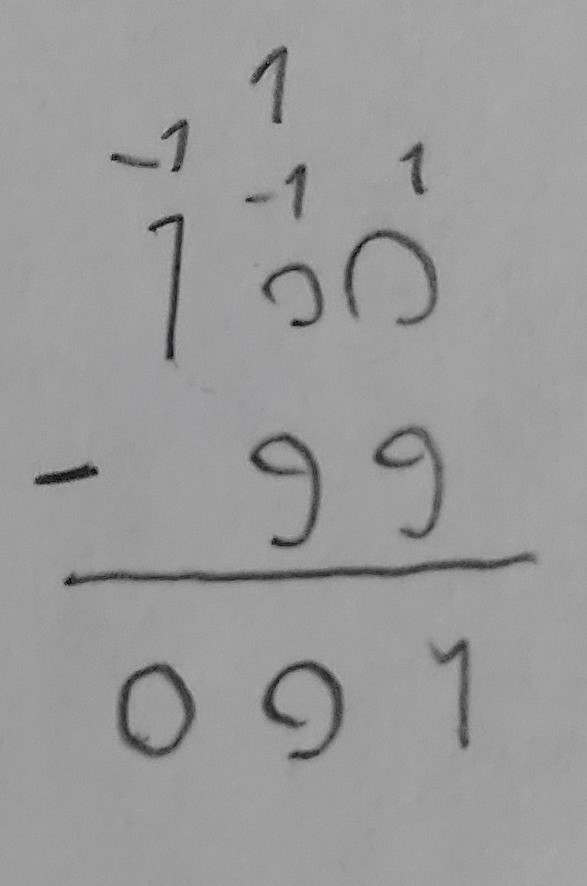 1
-1 -1 1
100
- 99
001